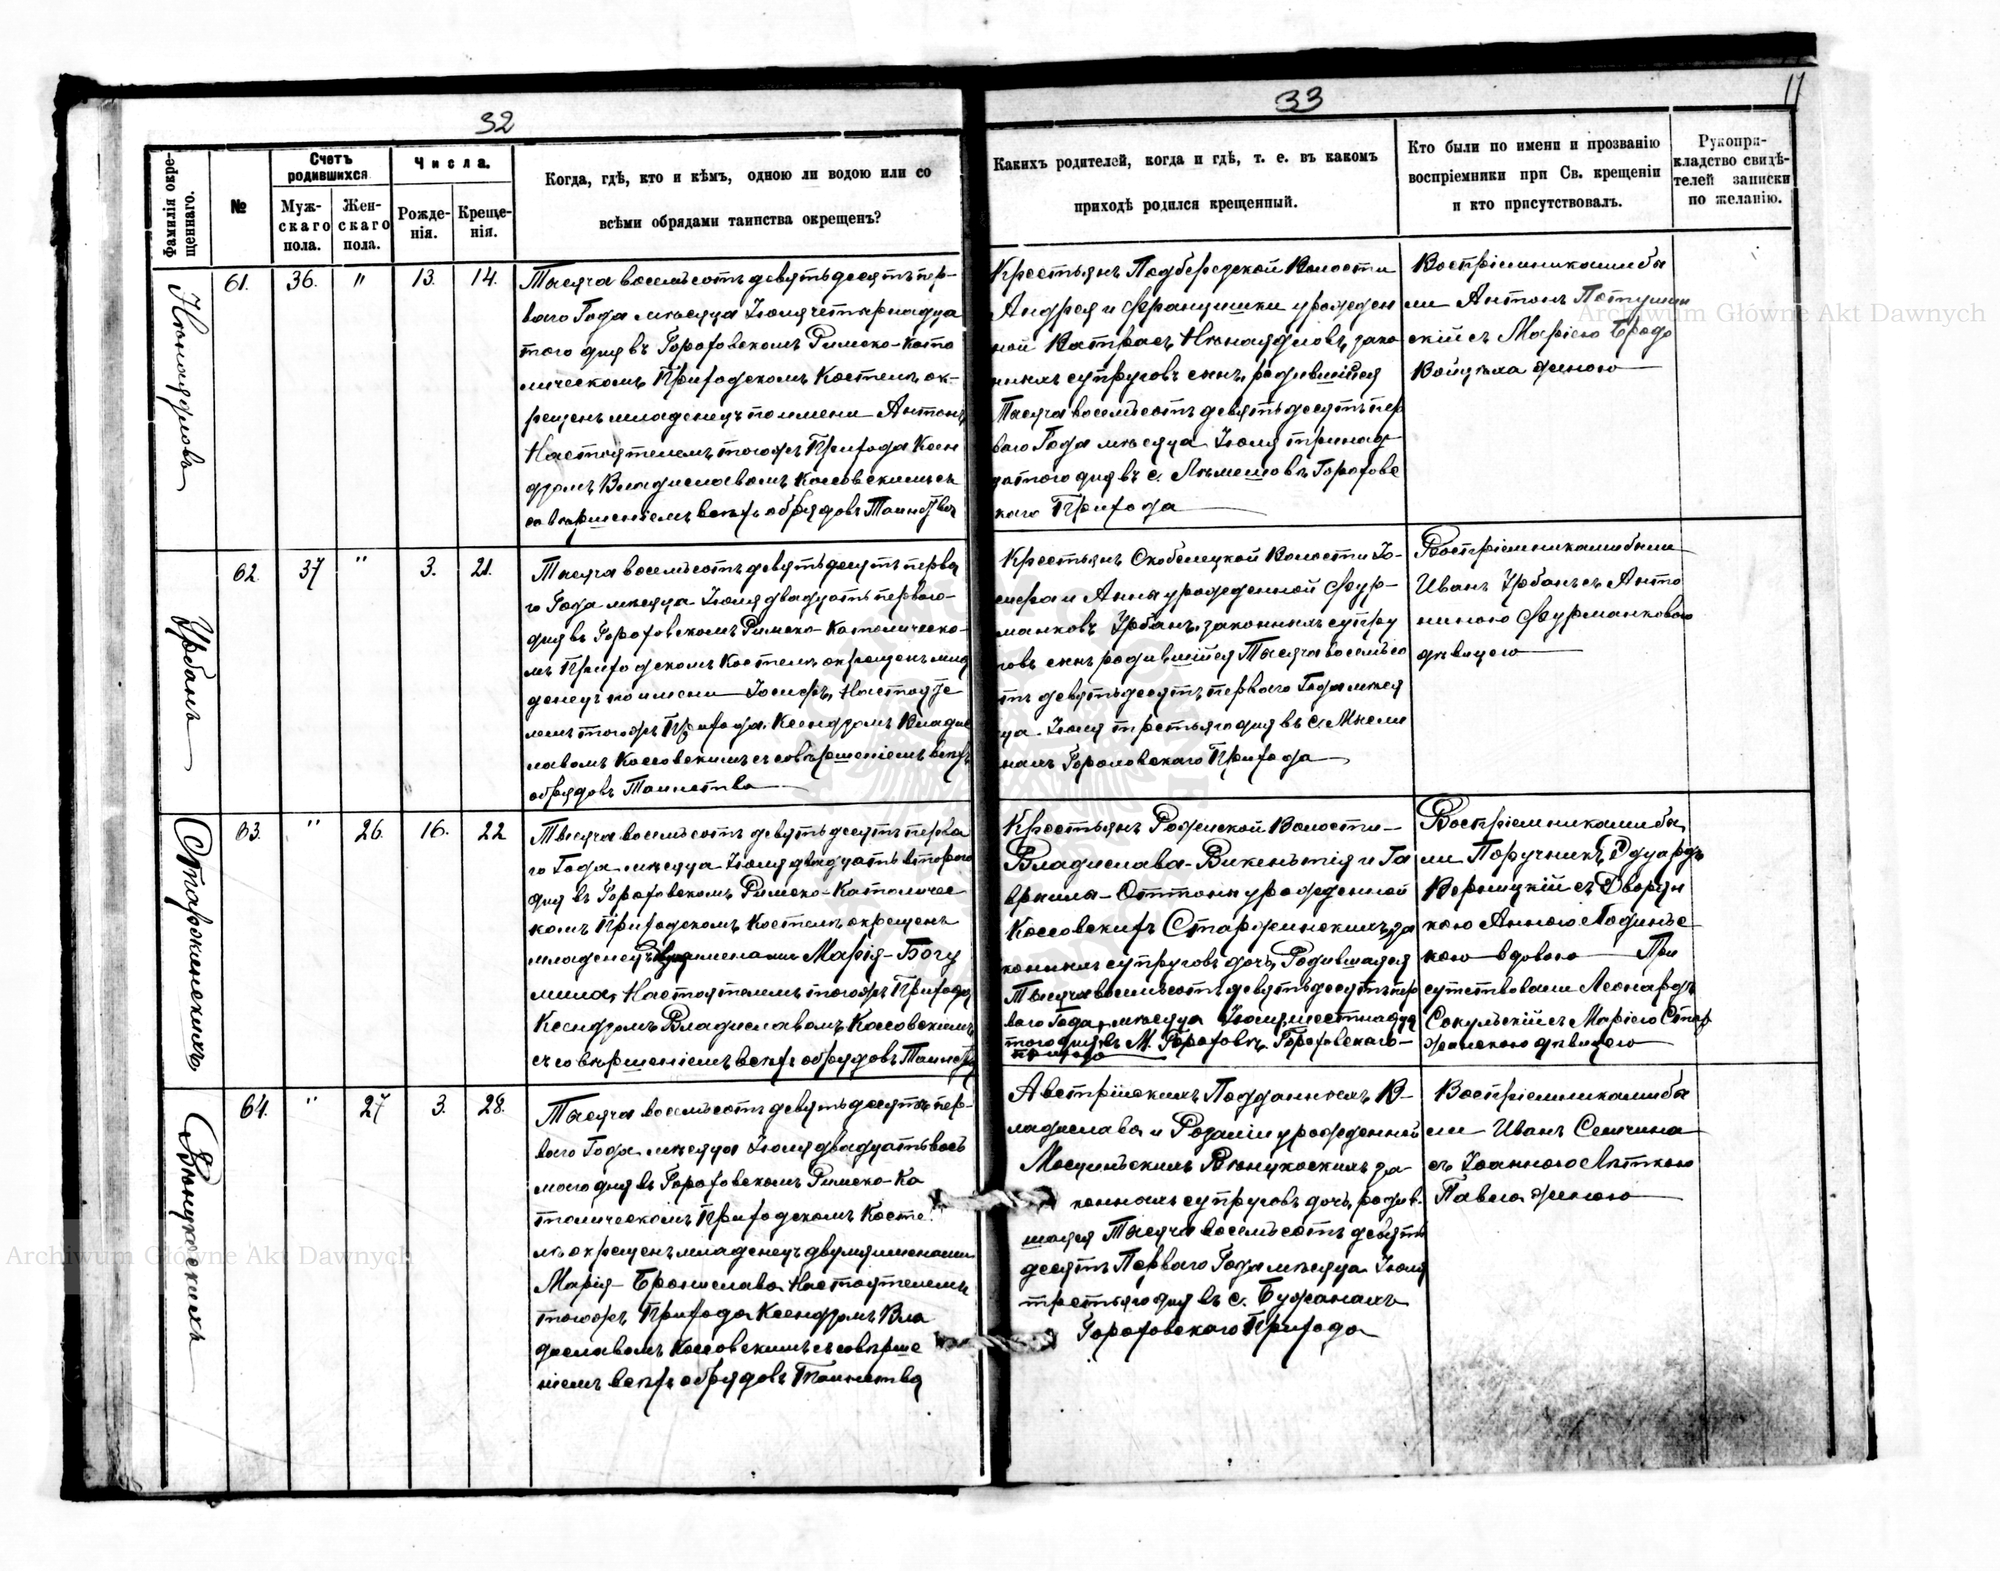 32
33
11
Фамилія окре-
щеннаго.
№
Счетъ
родившихся
Муж-
скаго
пола.
Жен-
скаго
пола.
Числа.
Рожде-
нія.
Креще-
нія.
Когда, гдѣ, кто и кѣмъ, одною ли водою или со
всѣми обрядами таинства окрещенъ?
Какихъ родителей, когда и гдѣ, т. е. въ какомъ
приходѣ родился крещенный.
Кто были по имени и прозванію
воспріемники при Св. крещеніи
и кто присутствовалъ.
Рукопри-
кладство свидѣ-
телей записки
по желанію.
61. 36. " 13. 14.
Тысяча восемьсотъ девятьдесятъ пер-
ваго Года мѣсяца Іюля четырнадца
того дня въ Гороховскомъ Римско-Като
лическомъ Приходскомъ Костелѣ ок-
рещенъ младенецъ по имени Антонъ
Настоятелемъ тогожъ Прихода Ксен
дзомъ Владиславомъ Коссовскимъ съ
совершеніемъ всѣхъ обрядовъ Таинства
Крестьянъ Подберезской Волости
Андрея и Францишки урожден
ной Ватрасъ законн
ныхъ супруговъ сынъ, родившійся
Тысяча восемьсотъ девятьдесятъ пер
ваго Года мѣсяца Іюля тринад-
цатого дня въ с. Гороховс
каго Прихода
Воспріемниками бы
ли Антонъ
скій съ Маріею
Войцѣха женою
62. 37 " 3. 21.
Урбанъ
Тысяча восемьсотъ девятьдесятъ перва
го Года мѣсяца Іюля двадцать первого
дня въ Гороховскомъ Римско-Католическо-
мъ Приходскомъ Костелѣ окрещенъ мла
денецъ по имени Іосифъ, Настояте
лемъ тогожъ Прихода Ксендзомъ Владис
лавомъ Коссовскимъ съ совершеніемъ всѣхъ
обрядовъ Таинства
Крестьянъ Скобелецкой Волости Іо-
сифа и Анны урожденной Фур-
манковъ Урбанъ, законныхъ супру
говъ сынъ родившійся Тысяча восемьсо
тъ девятьдесятъ перваго Года мѣся
ца Іюля третьяго дня въ с.
Гороховскаго Прихода
Воспріемниками были
Иванъ Урбанъ съ Анто
ниною Фурманковою
дѣвицею
63. " 26. 16. 22
Старжинскихъ
Тысяча восемьсотъ девятьдесятъ перва
го Года мѣсяца Іюля двадцать второго
дня въ Гороховскомъ Римско-Католичес
комъ Приходскомъ Костелѣ окрещенъ
младенецъ именами Марія-Богу
мила, Настоятелемъ тогожъ Прихода
Ксендзомъ Владиславомъ Коссовскимъ
съ совершеніемъ всѣхъ обрядовъ Таинства
Крестьянъ Волости
Владислава-Викентія и Га
урожденной
Коссовскихъ Старжинскихъ, за
конныхъ супруговъ дочь, Родившаяся
Тысяча восемьсотъ девятьдесятъ пер
ваго Года мѣсяца Іюля шестнадца
того дня въ М. Гороховѣ, Гороховскаго
Прихода
Воспріемниками бы
ли Поручникъ Эдуардъ
Верницкій съ Дворян
кою Анною
кою вдовою При
сутствовали Леонардъ
Сокульскій съ Маріею Стар
жинскою дѣвицею
64. " 27 3. 28.
Тысяча восемьсотъ девятьдесятъ пер-
ваго Года мѣсяца Іюля двадцать вось
мого дня въ Гороховскомъ Римско-Ка
толическомъ Приходскомъ Косте
лѣ окрещенъ младенецъ двумя именами
Марія-Брониславa Настоятелемъ
тогожъ Прихода Ксендзомъ Вла
диславомъ Коссовскимъ съ соверше
ніемъ всѣхъ обрядовъ Таинства
Австрійскихъ Подданныхъ, В-
ладислава и Розаліи урожденной
за
конныхъ супруговъ дочь, родив-
шаяся Тысяча восемьсотъ девять
десятъ Перваго Года мѣсяца Іюля
третьяго дня въ с. Бужанахъ
Гороховскаго Прихода
Воспріемниками бы
ли Иванъ Семчина
съ Іоанною
Павла женою
Archiwum Główne Akt Dawnych
Archiwum Główne Akt Dawnych